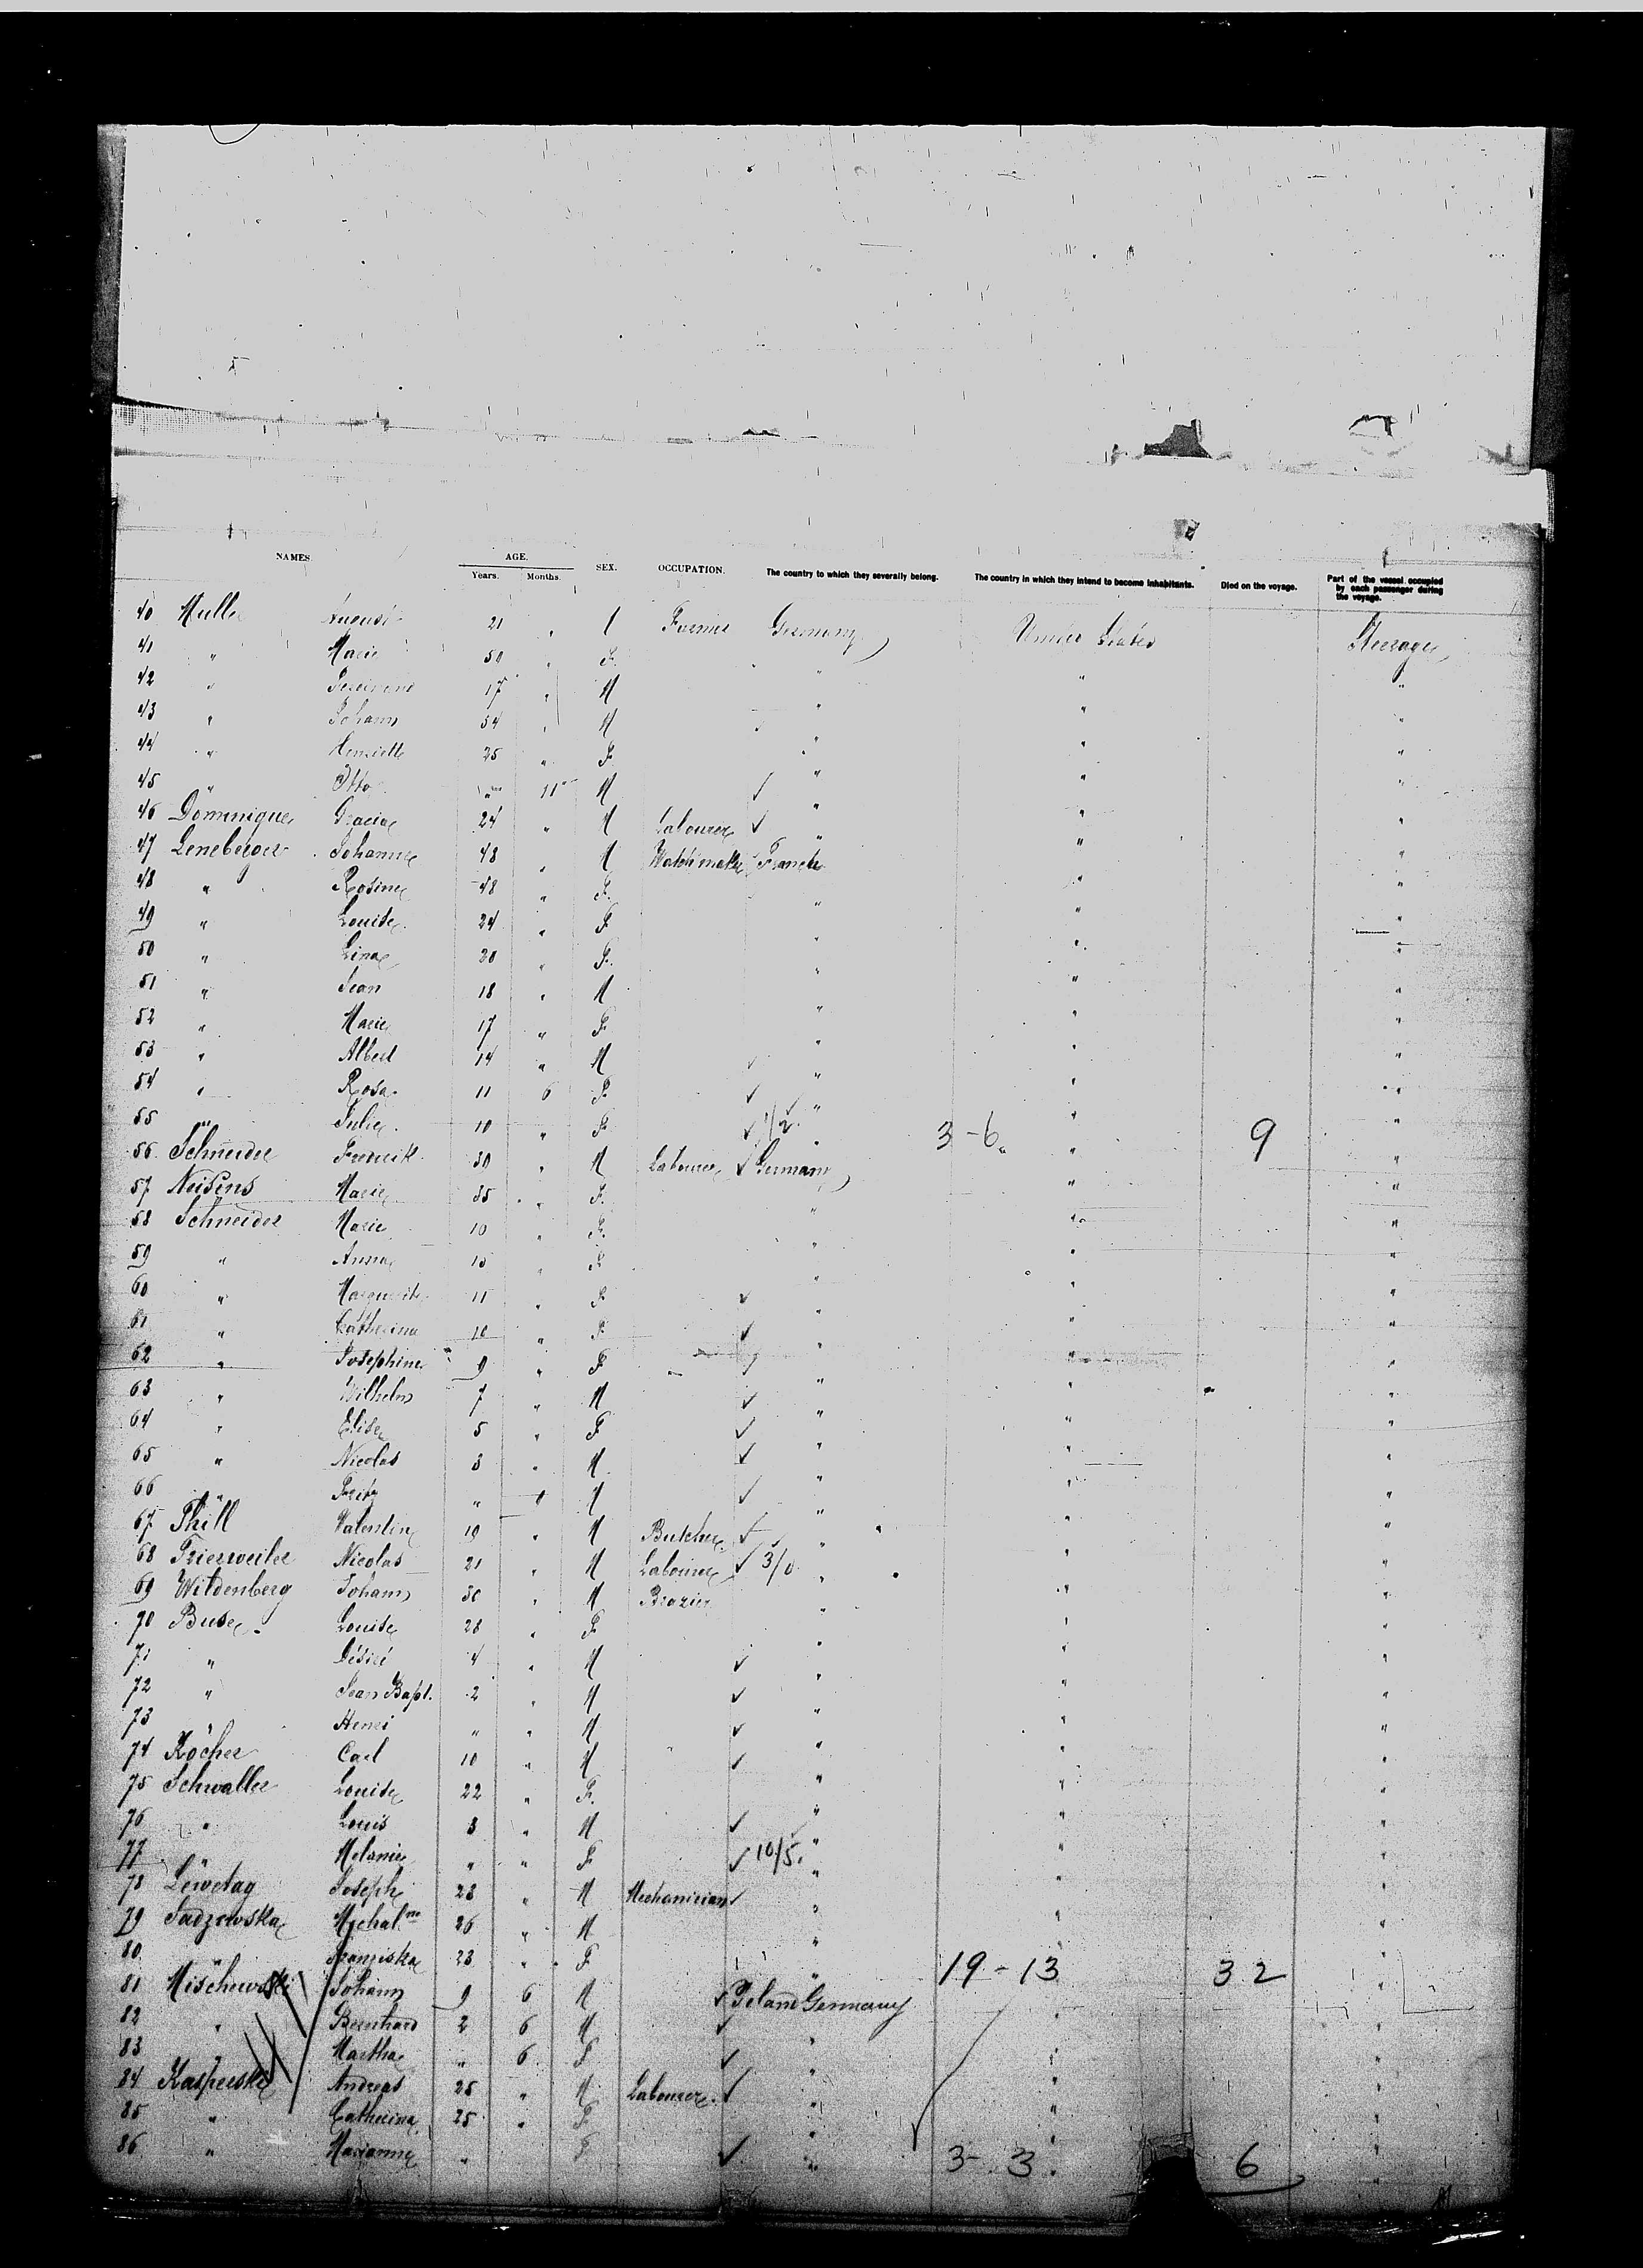 NAMES. AGE. SEX. OCCUPATION. The country to which they severally belong. The country in which they intend to become inhabitants. Died on the voyage. Part of the vessel occupied by each passenger during the voyage.
Years. Months.
40 August 21 " Germany United States Steerage
41 " Marie 50 " F. " " "
42 " 17 " M " " "
43 " Johann 54 " M " " "
44 " Henriette 25 " F " " "
45 " Otto " 11 M ✓ " " "
46 Dominique Gracia 24 " M Labourer ✓ " " "
47 Leneberger Johannes 48 " M Watchmaker France " "
48 " Rosine 48 " F. " " "
49 " Louise 24 " F " " "
50 " Lina 20 " F. " " "
51 " Jean 18 " M " " "
52 " Marie 17 " F " " "
53 " Albert 14 " M ✓ " " "
54 " Rosa 11 6 F ✓ " " "
55 " Julie 10 " F ✓ 1/2 " 3-6 " 9 "
56 Schneider 30 " M Labourer ✓ Germany " "
57 Marie 35 " F. " " "
58 Schneider Marie 10 " F. " " "
59 " Anna " F " " "
60 " 11 " F ✓ " " "
61 " Catherina 10 " F ✓ " " "
62 " Josephine 9 " F ✓ " " "
63 " Wilhelm 7 " M ✓ " " "
64 " Elise 5 " F ✓ " " "
65 " Nicolas 3 " M ✓ " " "
66 " Fritz " M ✓ " " "
67 Thill Valentin 19 " M Butcher ✓ " " "
68 Trierweiler Nicolas 21 " M Labourer ✓ 3/0 " " "
69 Wildenberg Johann " M Brazier " " "
70 Buse Louise 28 " F " " "
71 " Désiré 4 " M ✓ " " "
72 " Jean Bapt. 2 " M ✓ " " "
73 " Henri " " M ✓ " " "
74 Köcher Carl 10 " M ✓ " " "
75 Schwaller Louise 22 " F. " " "
76 " Louis 3 " M ✓ " " "
77 " Melanie " " F ✓ 10/5 " " "
78 Joseph 28 " M Mechanician ✓ " " "
79 Michal 26 " M " " "
80 Franziska 23 " F " 19-13 32 "
81 Johann 9 6 M ✓ Poland Germany "
82 " Bernhard 2 6 M ✓ " " "
83 " Martha " 6 F ✓ " " "
84 Andreas 25 " M Labourer ✓ " " "
85 " Catherina 25 " F " " "
86 " Marianna " F ✓ " 3-3 6 "